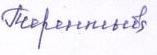 Терентьев